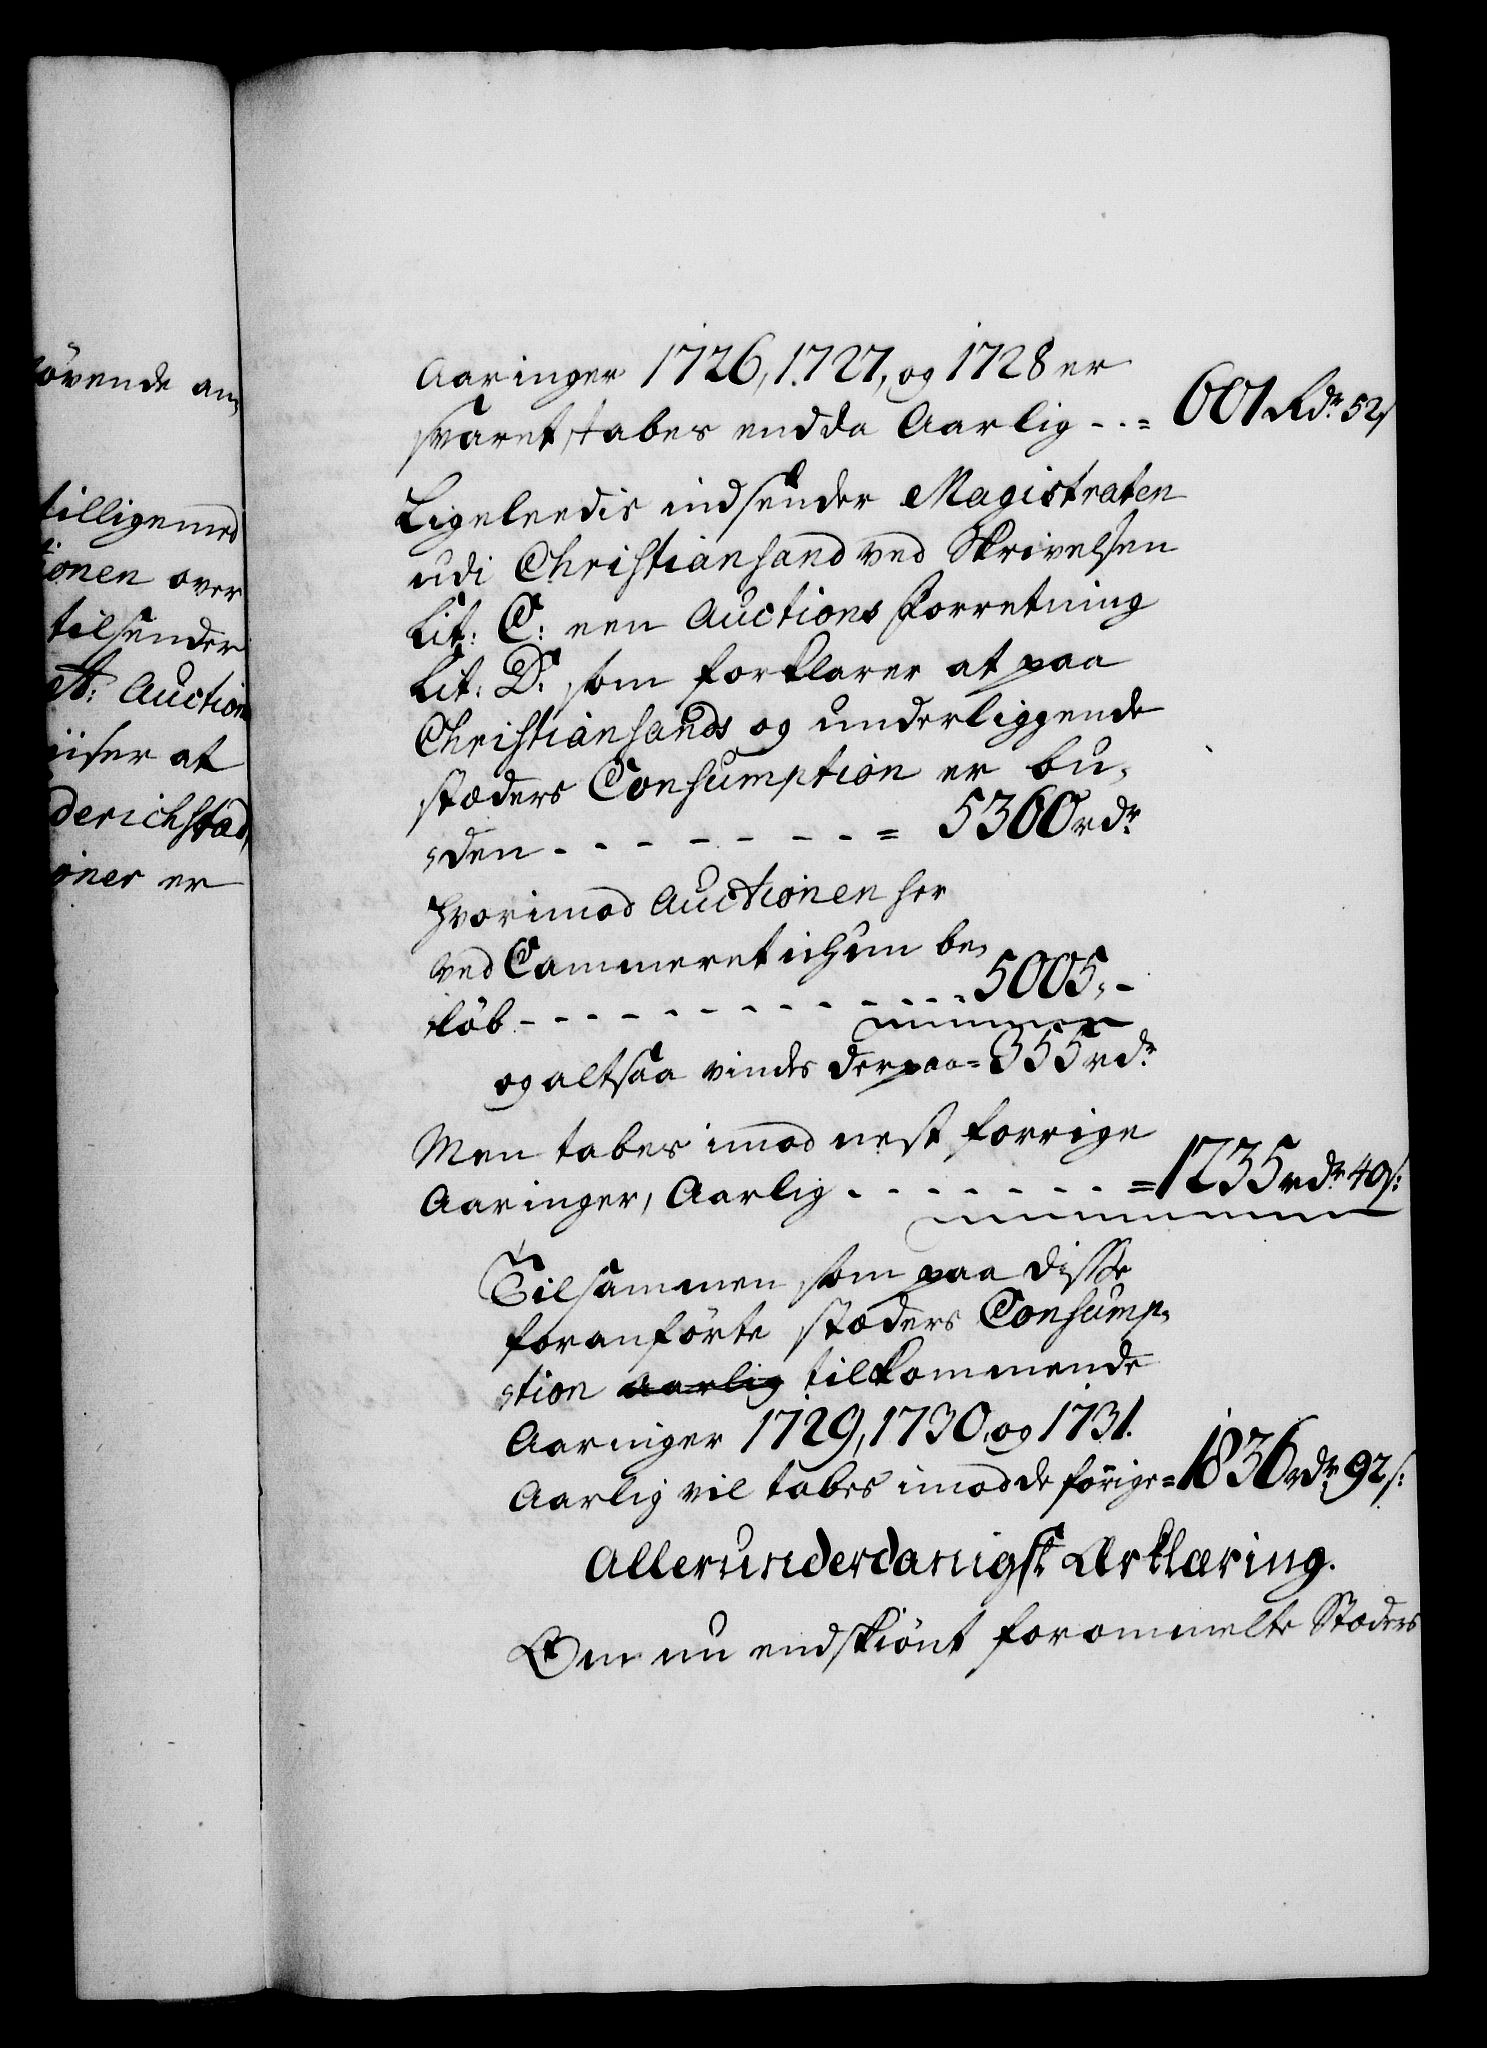 tilligemed
onen over
tilsender
A: Auction
iiser at
derichstad,
er
Aaringer 1726, 1727, og 1728 er
svaret, tabes endda Aarlig - . = 601 Rdr 52 s
Ligeleedis indsender Magistraten
udi Christiansand ved Skrivelsen
Lit: C: een Auctions Forretning
Lit: D: som forklarer at paa
Christiansands og underliggende
stæders Consumption er bu,
,den - - - - - - - - = 5360 rdr
Hvorimod Auctionen her
ved Cammeret ichun be,
,löb - - - - - - - - - - - - 5005,-
og altsaa vindes derpaa = 355 rdr
Men tabes imod nest forrige
Aaringer, Aarlig - - - - - - - = 1235 rdr 40 s:
Tilsammen som paa disse
foranförte stæders Consump,
,tion aarlig tilkommende
Aaringer 1729, 1730, og 1731.
Aarlig vil tabes imod de forige = 1836 rdr 92 s:
Allerunderdanigst Erklæring.
Om nu endskiönt forommelte Stæders